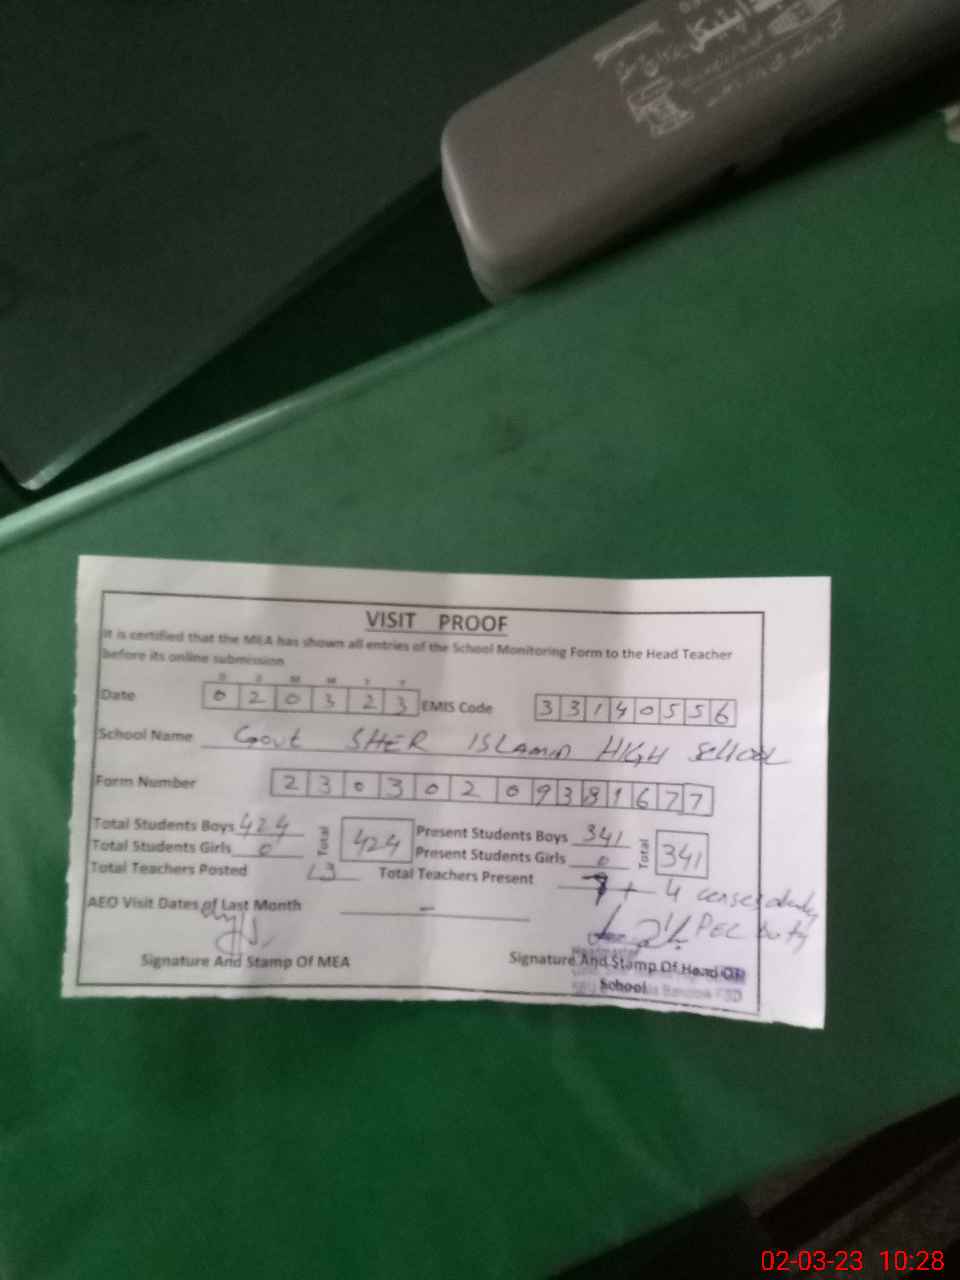 VISIT PROOF
It is certified that the MEA has shown all entries of the School Monitoring Form to the Head Teacher
before its online submission
D D M M Y Y
Date 0 2 0 3 2 3 EMIS Code 3 3 1 4 0 5 5 6
School Name Govt SHER ISLAMIA HIGH SCHOOL
Form Number 2 3 0 3 0 2 0 9 3 8 1 6 7 7
Total Students Boys 424 Total 424 Present Students Boys 341 Total 341
Total Students Girls 0 Present Students Girls 0
Total Teachers Posted 13 Total Teachers Present + 4 census duty
AEO Visit Dates of Last Month - PEC Duty
Signature And Stamp Of MEA Signature And Stamp Of Head Of
School
Headmaster
02-03-23 10:28